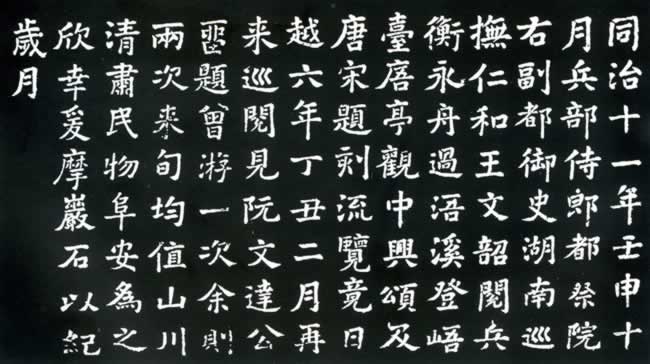 同治十一年壬申十
月兵部侍郎都察院
右副都御史湖南巡
撫仁和王文韶閱兵
衡永舟過浯溪登峿
臺𢈪亭觀中興頌及
唐宋題刻流覽竟日
越六年丁丑二月再
来巡閱見阮文達公
畱題曾游一次余則
兩次来旬均值山川
清肅民物阜安為之
欣幸爰摩巖石以紀
歲月